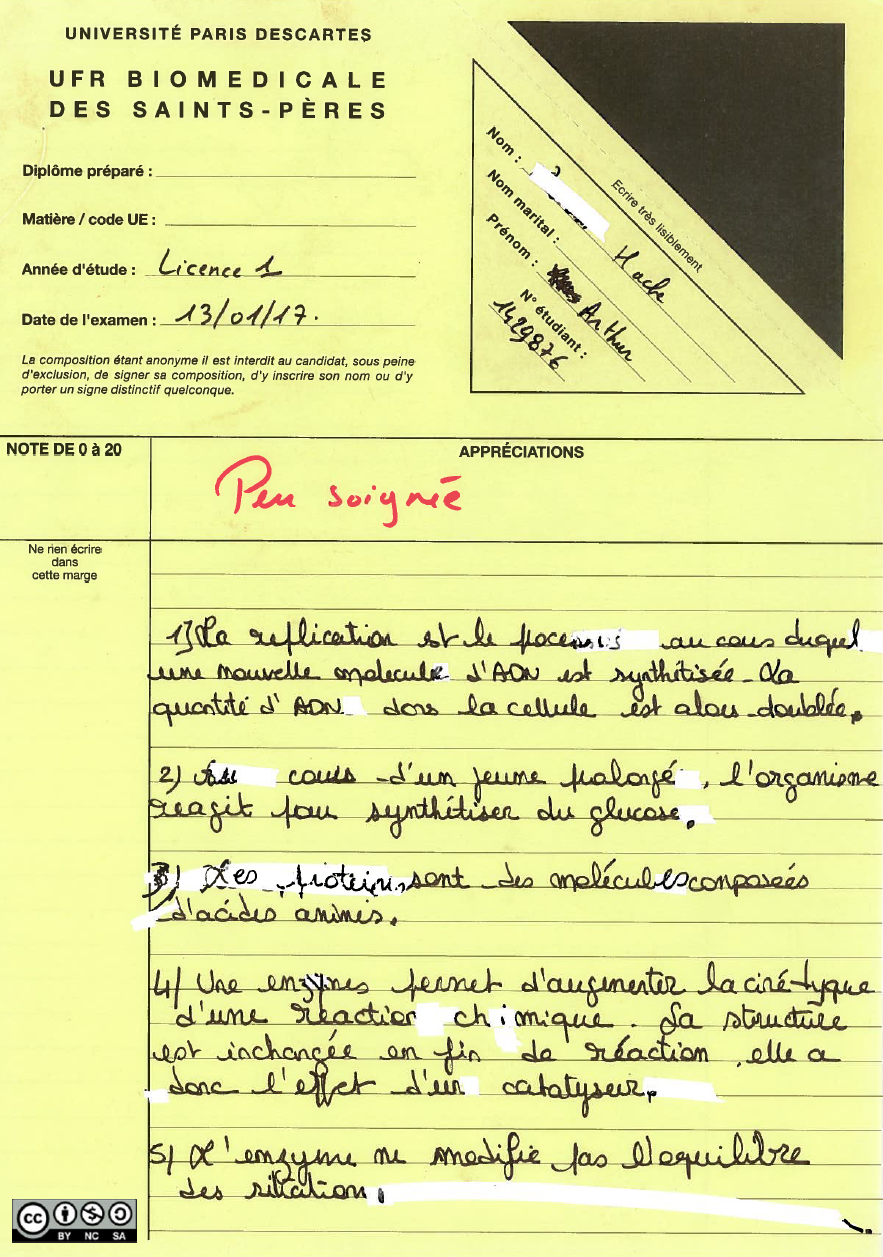 UNIVERSITÉ PARIS DESCARTES
UFR BIOMEDICALE
DES SAINTS-PÈRES
Diplôme préparé :
Matière / code UE :
Année d'étude : Licence 1
Date de l'examen : 13/01/17.
La composition étant anonyme il est interdit au candidat, sous peine
d'exclusion, de signer sa composition, d'y inscrire son nom ou d'y
porter un signe distinctif quelconque.
Ecrire très lisiblement
Nom : Hache
Nom marital :
Prénom : Arthur
N° étudiant :
1429876
NOTE DE 0 à 20
APPRÉCIATIONS
Peu soignée
Ne rien écrire
dans
cette marge
1) La replication est le pocessus au cous duquel
une nouvelle molecule d'ADN est synthétisée. La
quantité d'ADN dans la cellule est alous doublée.
2) Au cours d'un jeune palongé, l'organisme
reagit pou synthétiser du glucose.
3) Les proteins sont des molécules composeés
d'acides aminés.
4) Une enzymes permet d'augmenter la cinétyque
d'une réaction chimique. Sa structure
est inchangée en fin de réaction, elle a
donc l'effet d'un catatyseur.
5) L'enzyme ne modifie pas l'equilibre
des
CC BY NC SA